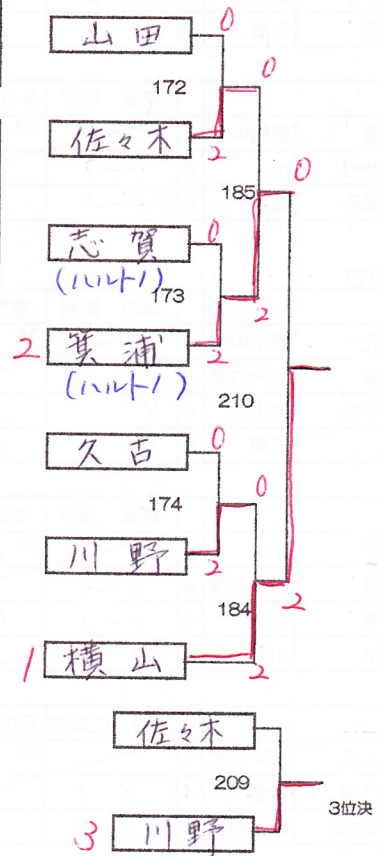 山田
0
172
0
佐々木
2
185
0
志賀
0
(ハルトノ)
173
2
2 箕浦
2
(ハルトノ)
210
久古
0
174
0
川野
2
184
2
1 横山
2
佐々木
209
3位決
3 川野